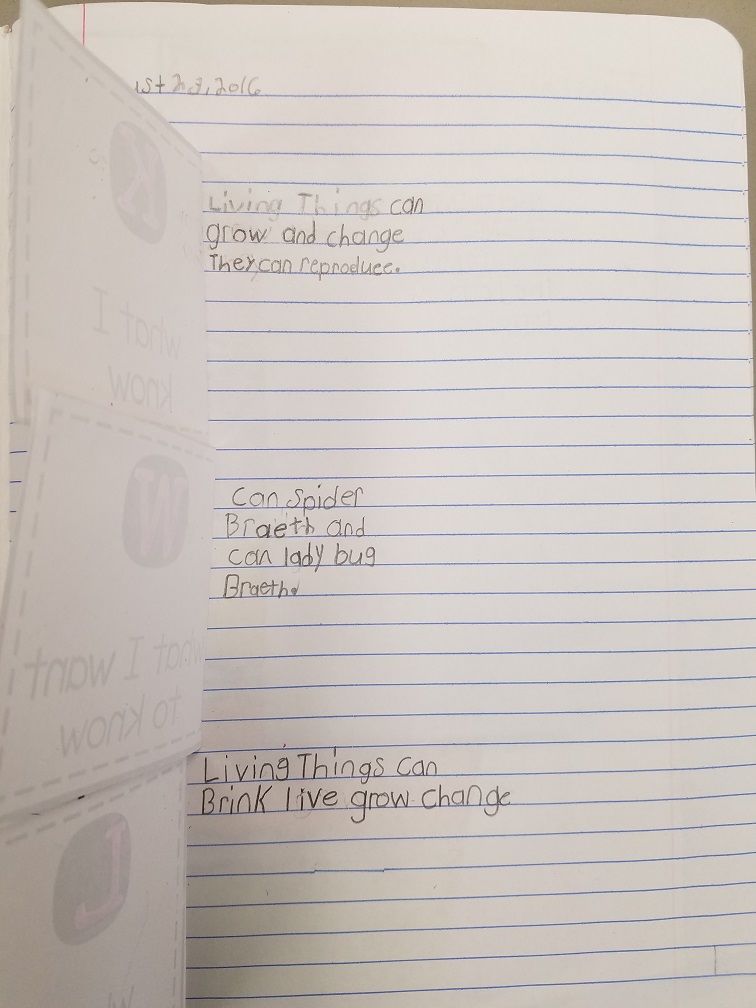 2016
K
What I
know
Living Things can
grow and change
They can reproduce.
W
What I want
to know
Can Spider
Braeth and
can lady bug
Braeth.
L
Living Things can
Brink live grow change